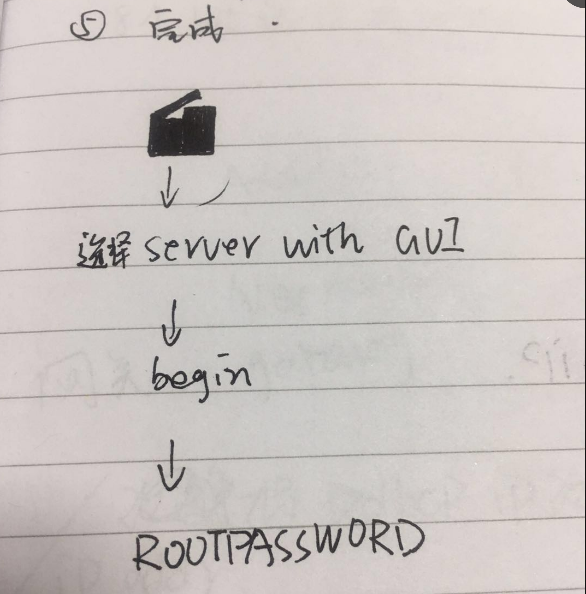 ⑤ 完成.
↓
选择 server with GUI
↓
begin
↓
ROOTPASSWORD